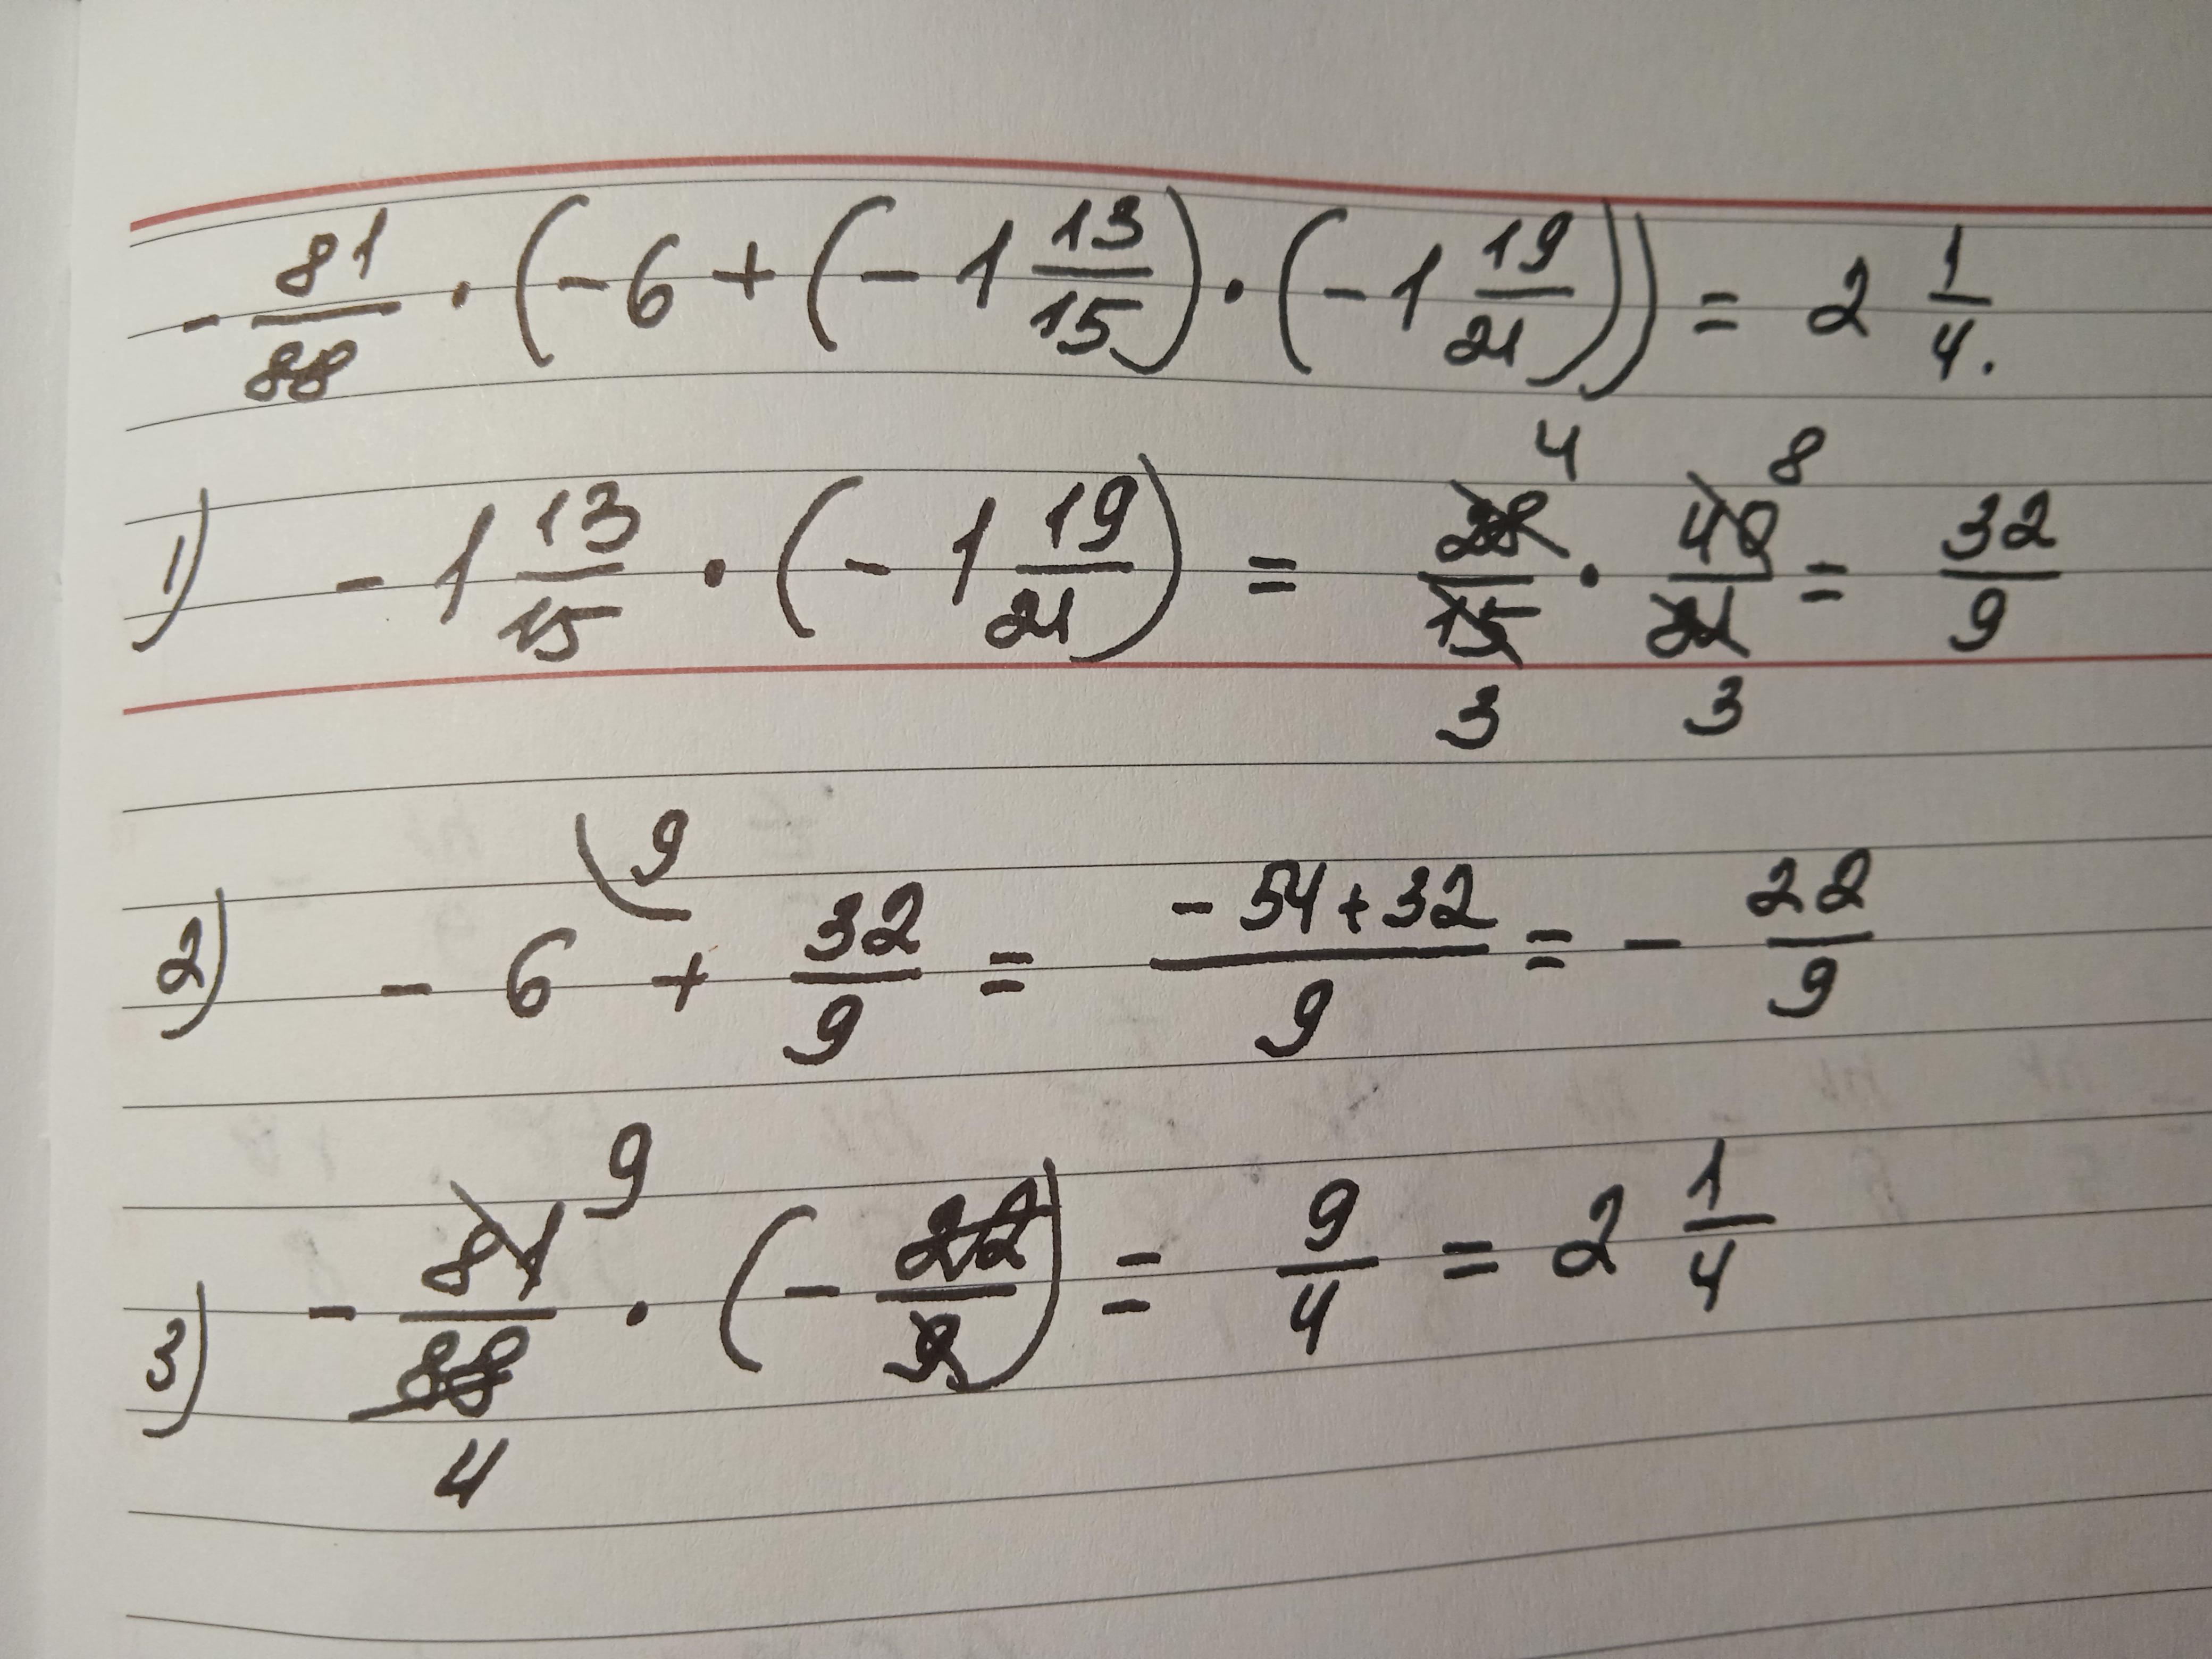 - 81/88 · (-6 + (-1 13/15) · (-1 19/21)) = 2 1/4.
1) -1 13/15 · (-1 19/21) = 28/15 · 40/21 = 32/9
4 8
3 3
9
2) -6 + 32/9 = (-54+32)/9 = - 22/9
9
3) - 81/88 · (- 22/9) = 9/4 = 2 1/4
4